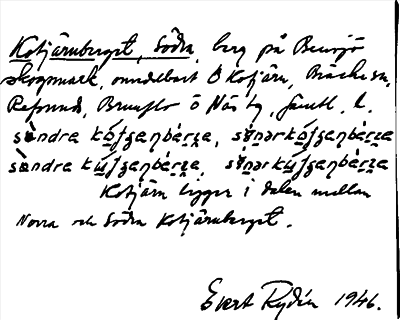 Kotjärnberget, Södra, berg på Bensjö
skogsmark, omedelbart Ö Kotjärn, Bräcke sn,
Refsunds, Brunflo o Näs tg, Jämtl. l.
sö̀ndra kó̱tʒenbèrge, sö́nərkó̱tʒenbèrge
sö̀ndra kú̱tʒenbèrge, sö́nərkú̱tʒenbèrge
Kotjärn ligger i dalen mellan
Norra och Södra Kotjärnberget.
Evert Rydén 1946.